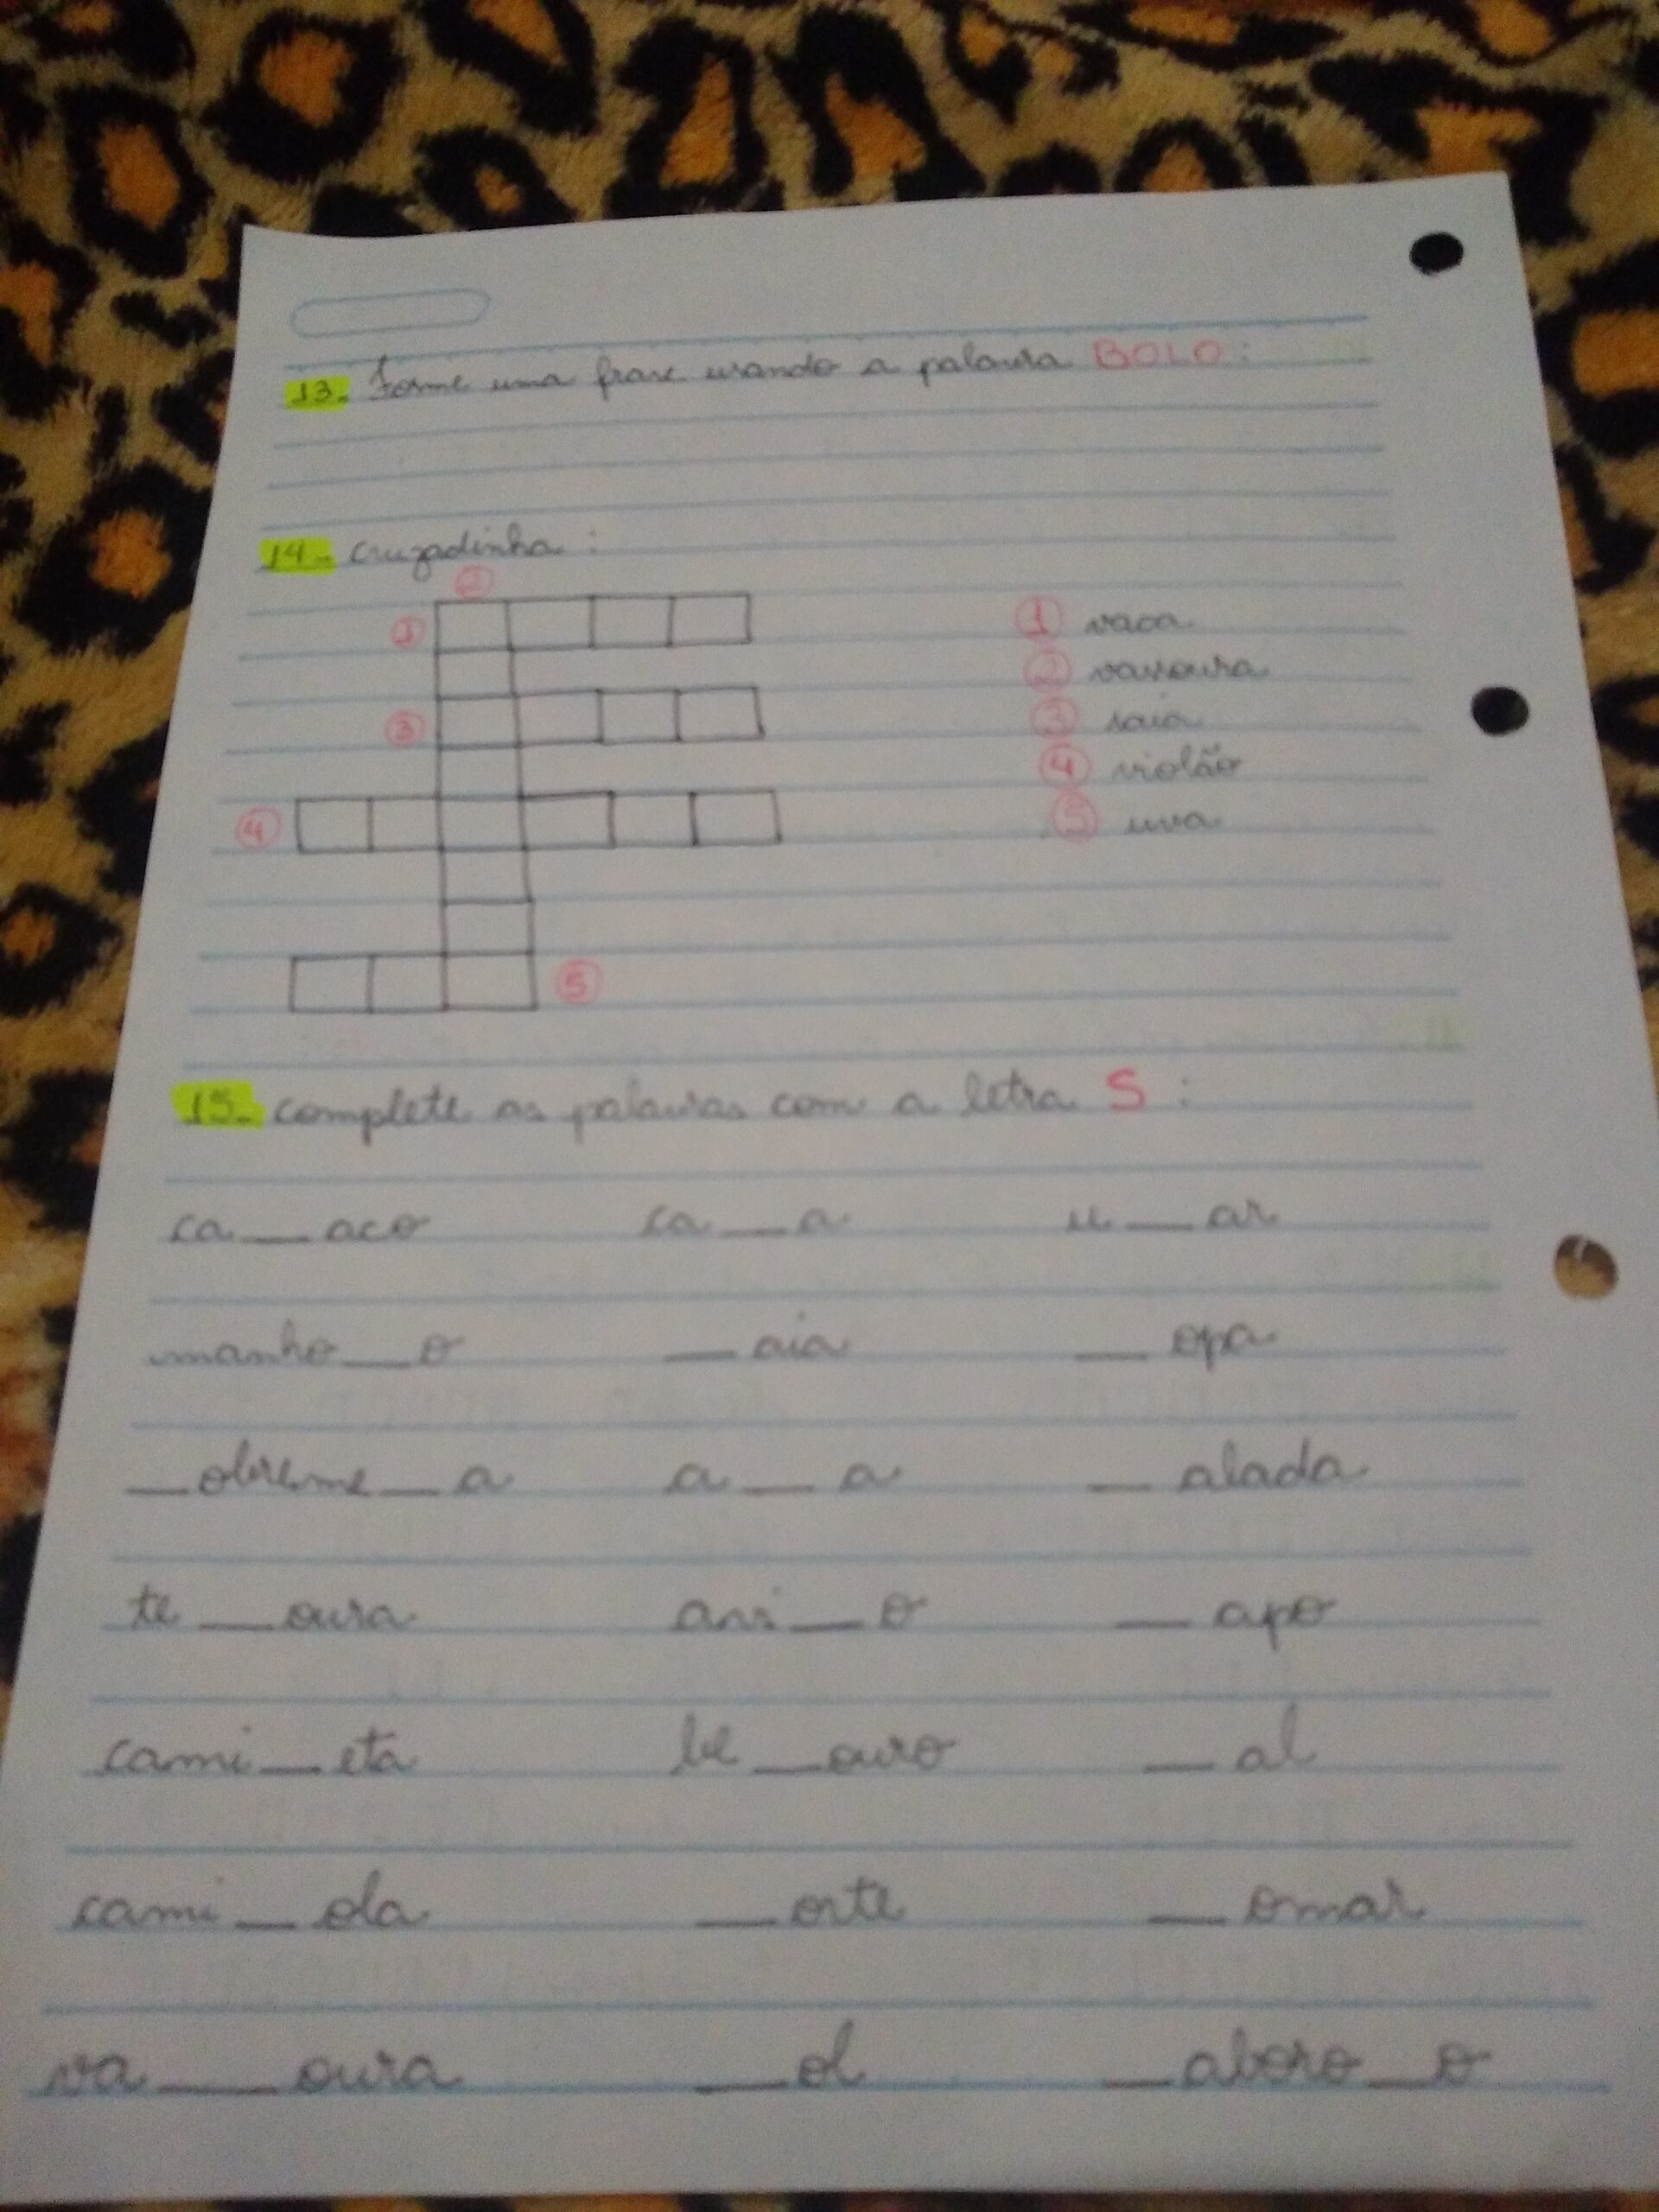 13- Forme uma frase usando a palavra BOLO:
14- cruzadinha:
2
1
3
4
5
1 vaca
2 vassoura
3 saia
4 violão
5 uva
15- complete as palavras com a letra S:
ca__aco ca__a u__ar
manho__o __aia __opa
__obreme__a a__a __alada
te__oura avi__o __apo
cami__eta be__ouro __al
cami__ola __orte __omar
va__oura __ol __aboro__o